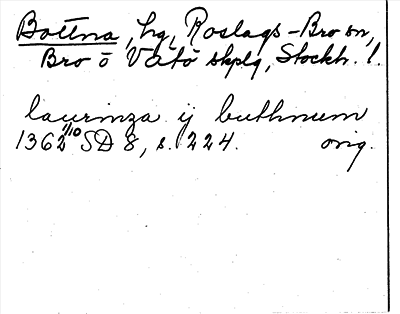 Bottna, hg, Roslags-Bro sn,
Bro o Vätö skplg, Stockh. l.
laurinza ij buthnum
1362 1/10 SD 8, s. 224. orig.